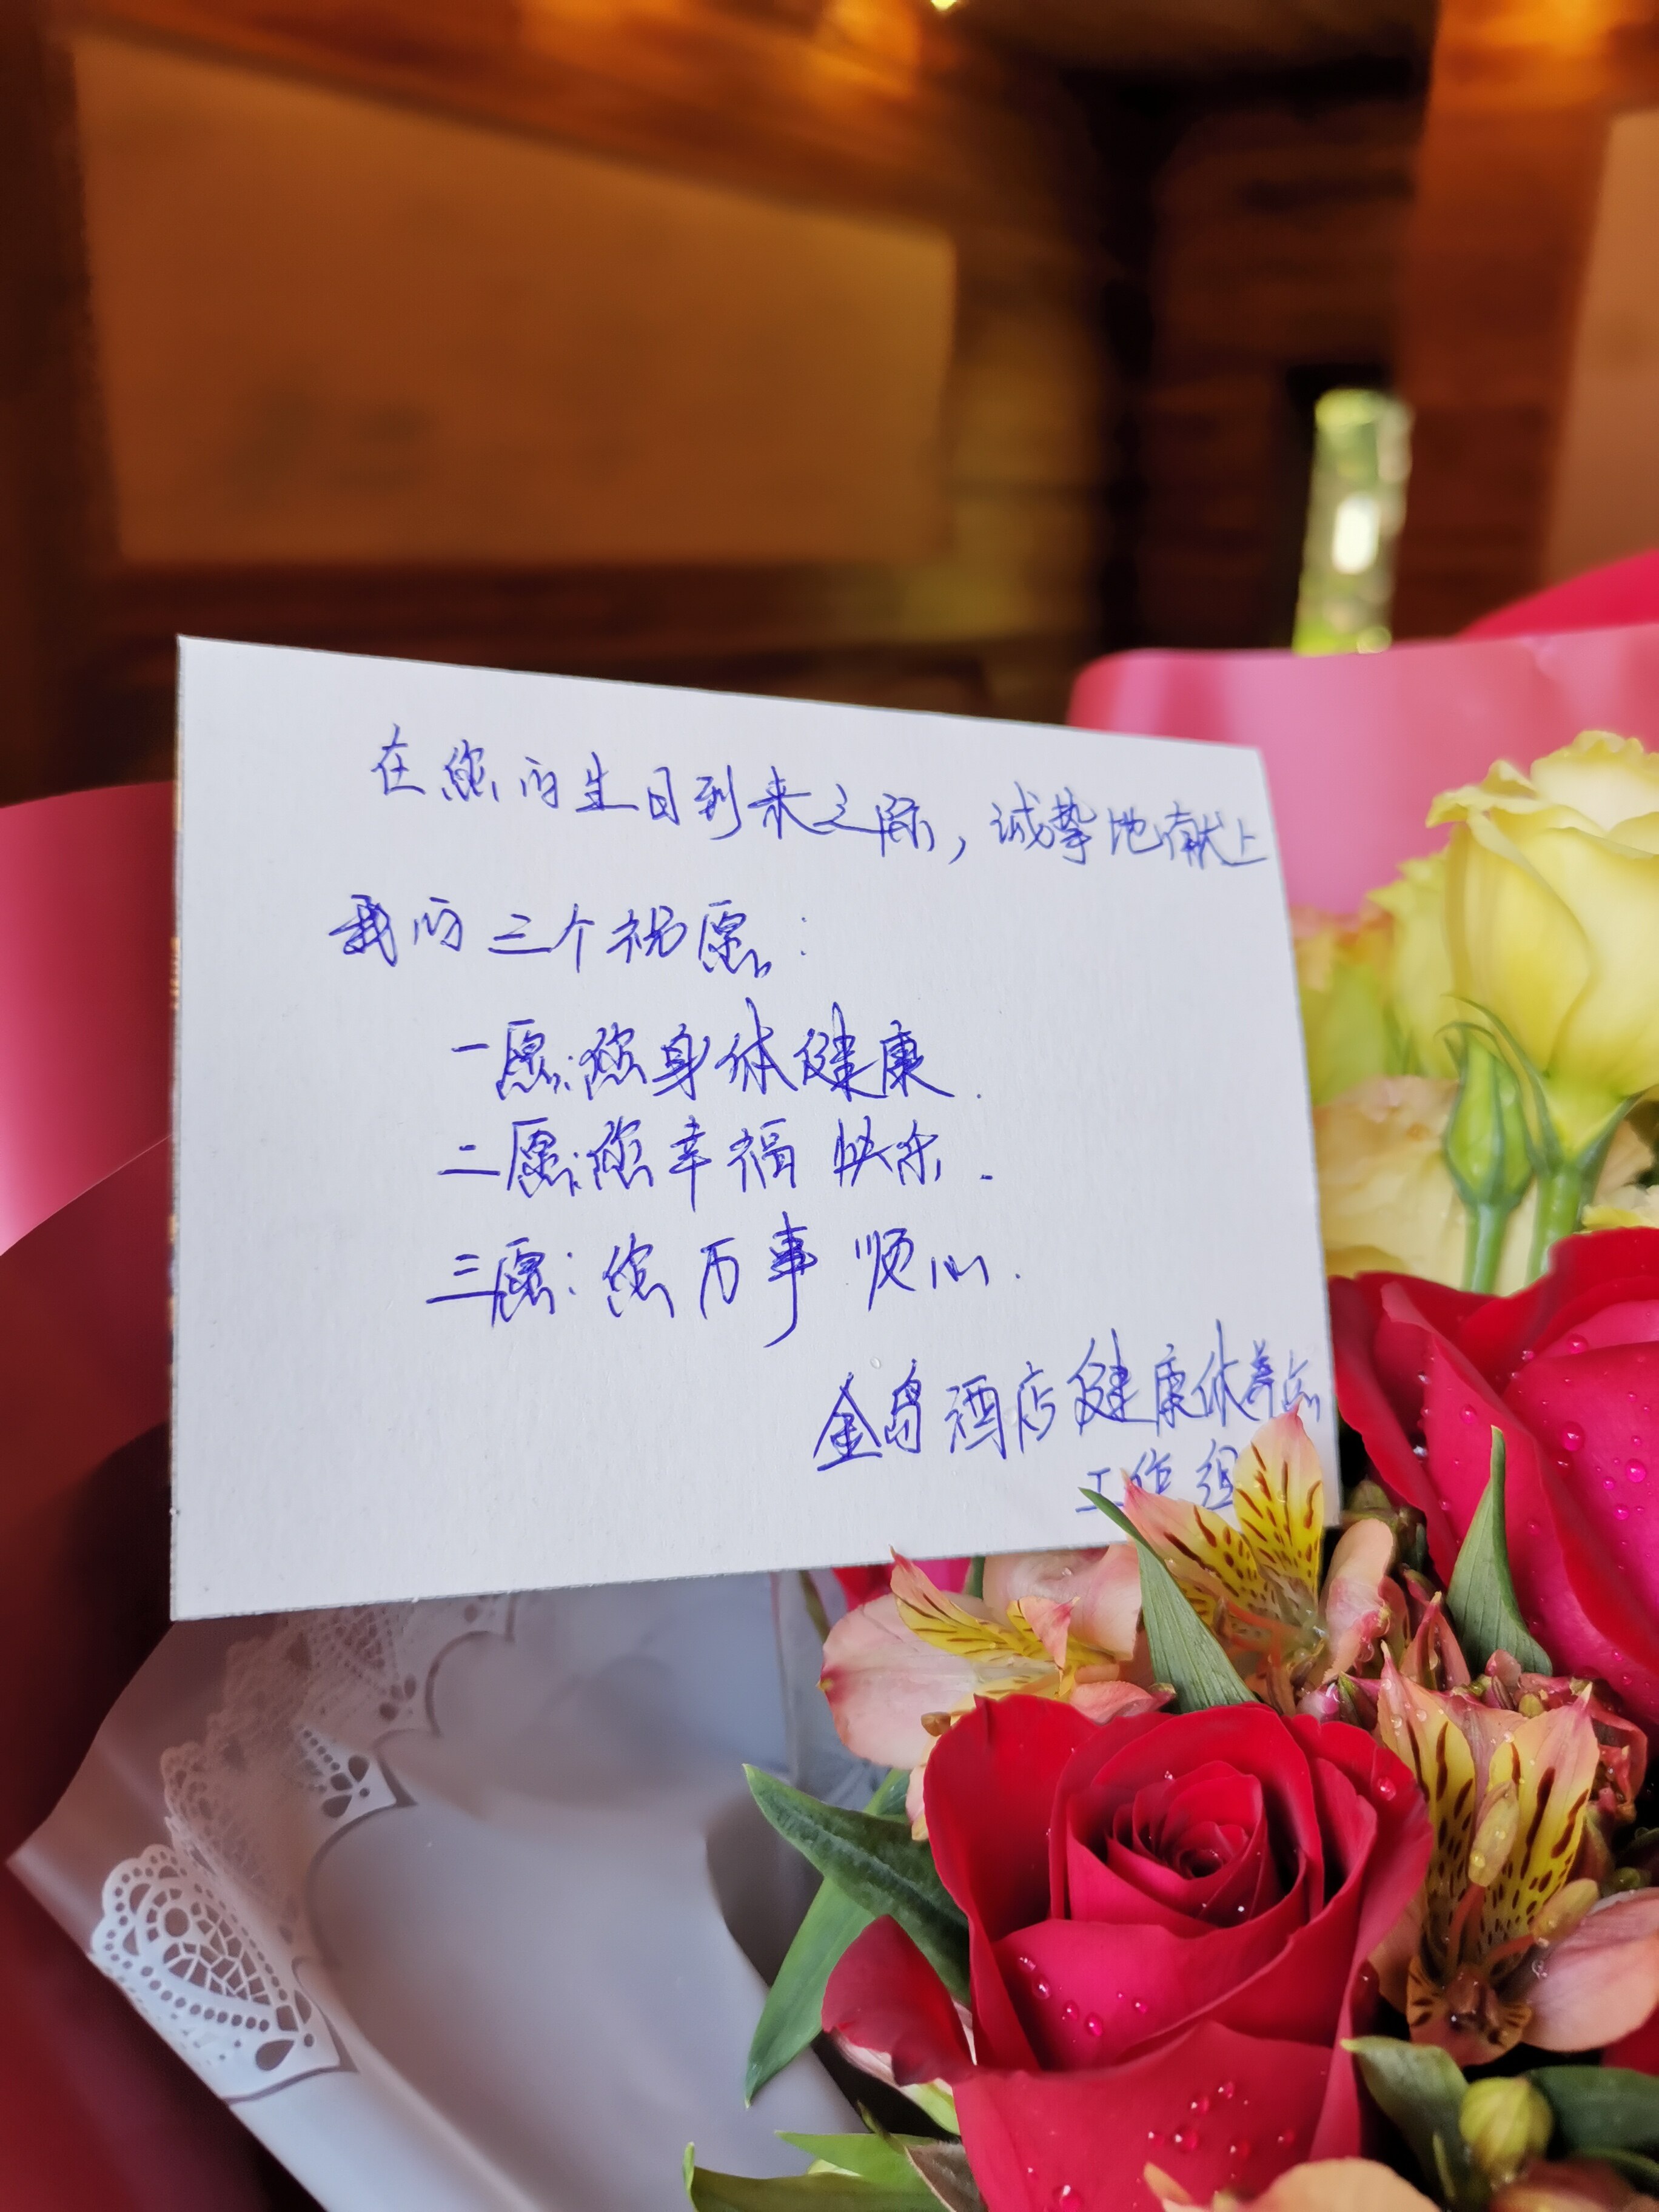 在您的生日到来之际，诚挚地献上
我的三个祝愿：
一愿：您身体健康.
二愿：您幸福快乐.
三愿：您万事顺心.
金岛酒店健康休养点
工作组